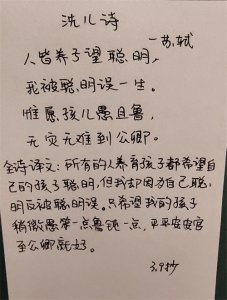 洗儿诗
—苏轼
人皆养子望聪明,
我被聪明误一生。
惟愿孩儿愚且鲁,
无灾无难到公卿。
全诗译文:所有的人养育孩子都希望自
己的孩子聪明,但我却因为自己聪
明反被聪明误。只希望我的孩子
稍微愚笨一点鲁钝一点,平平安安官
至公卿就好。
3.9抄